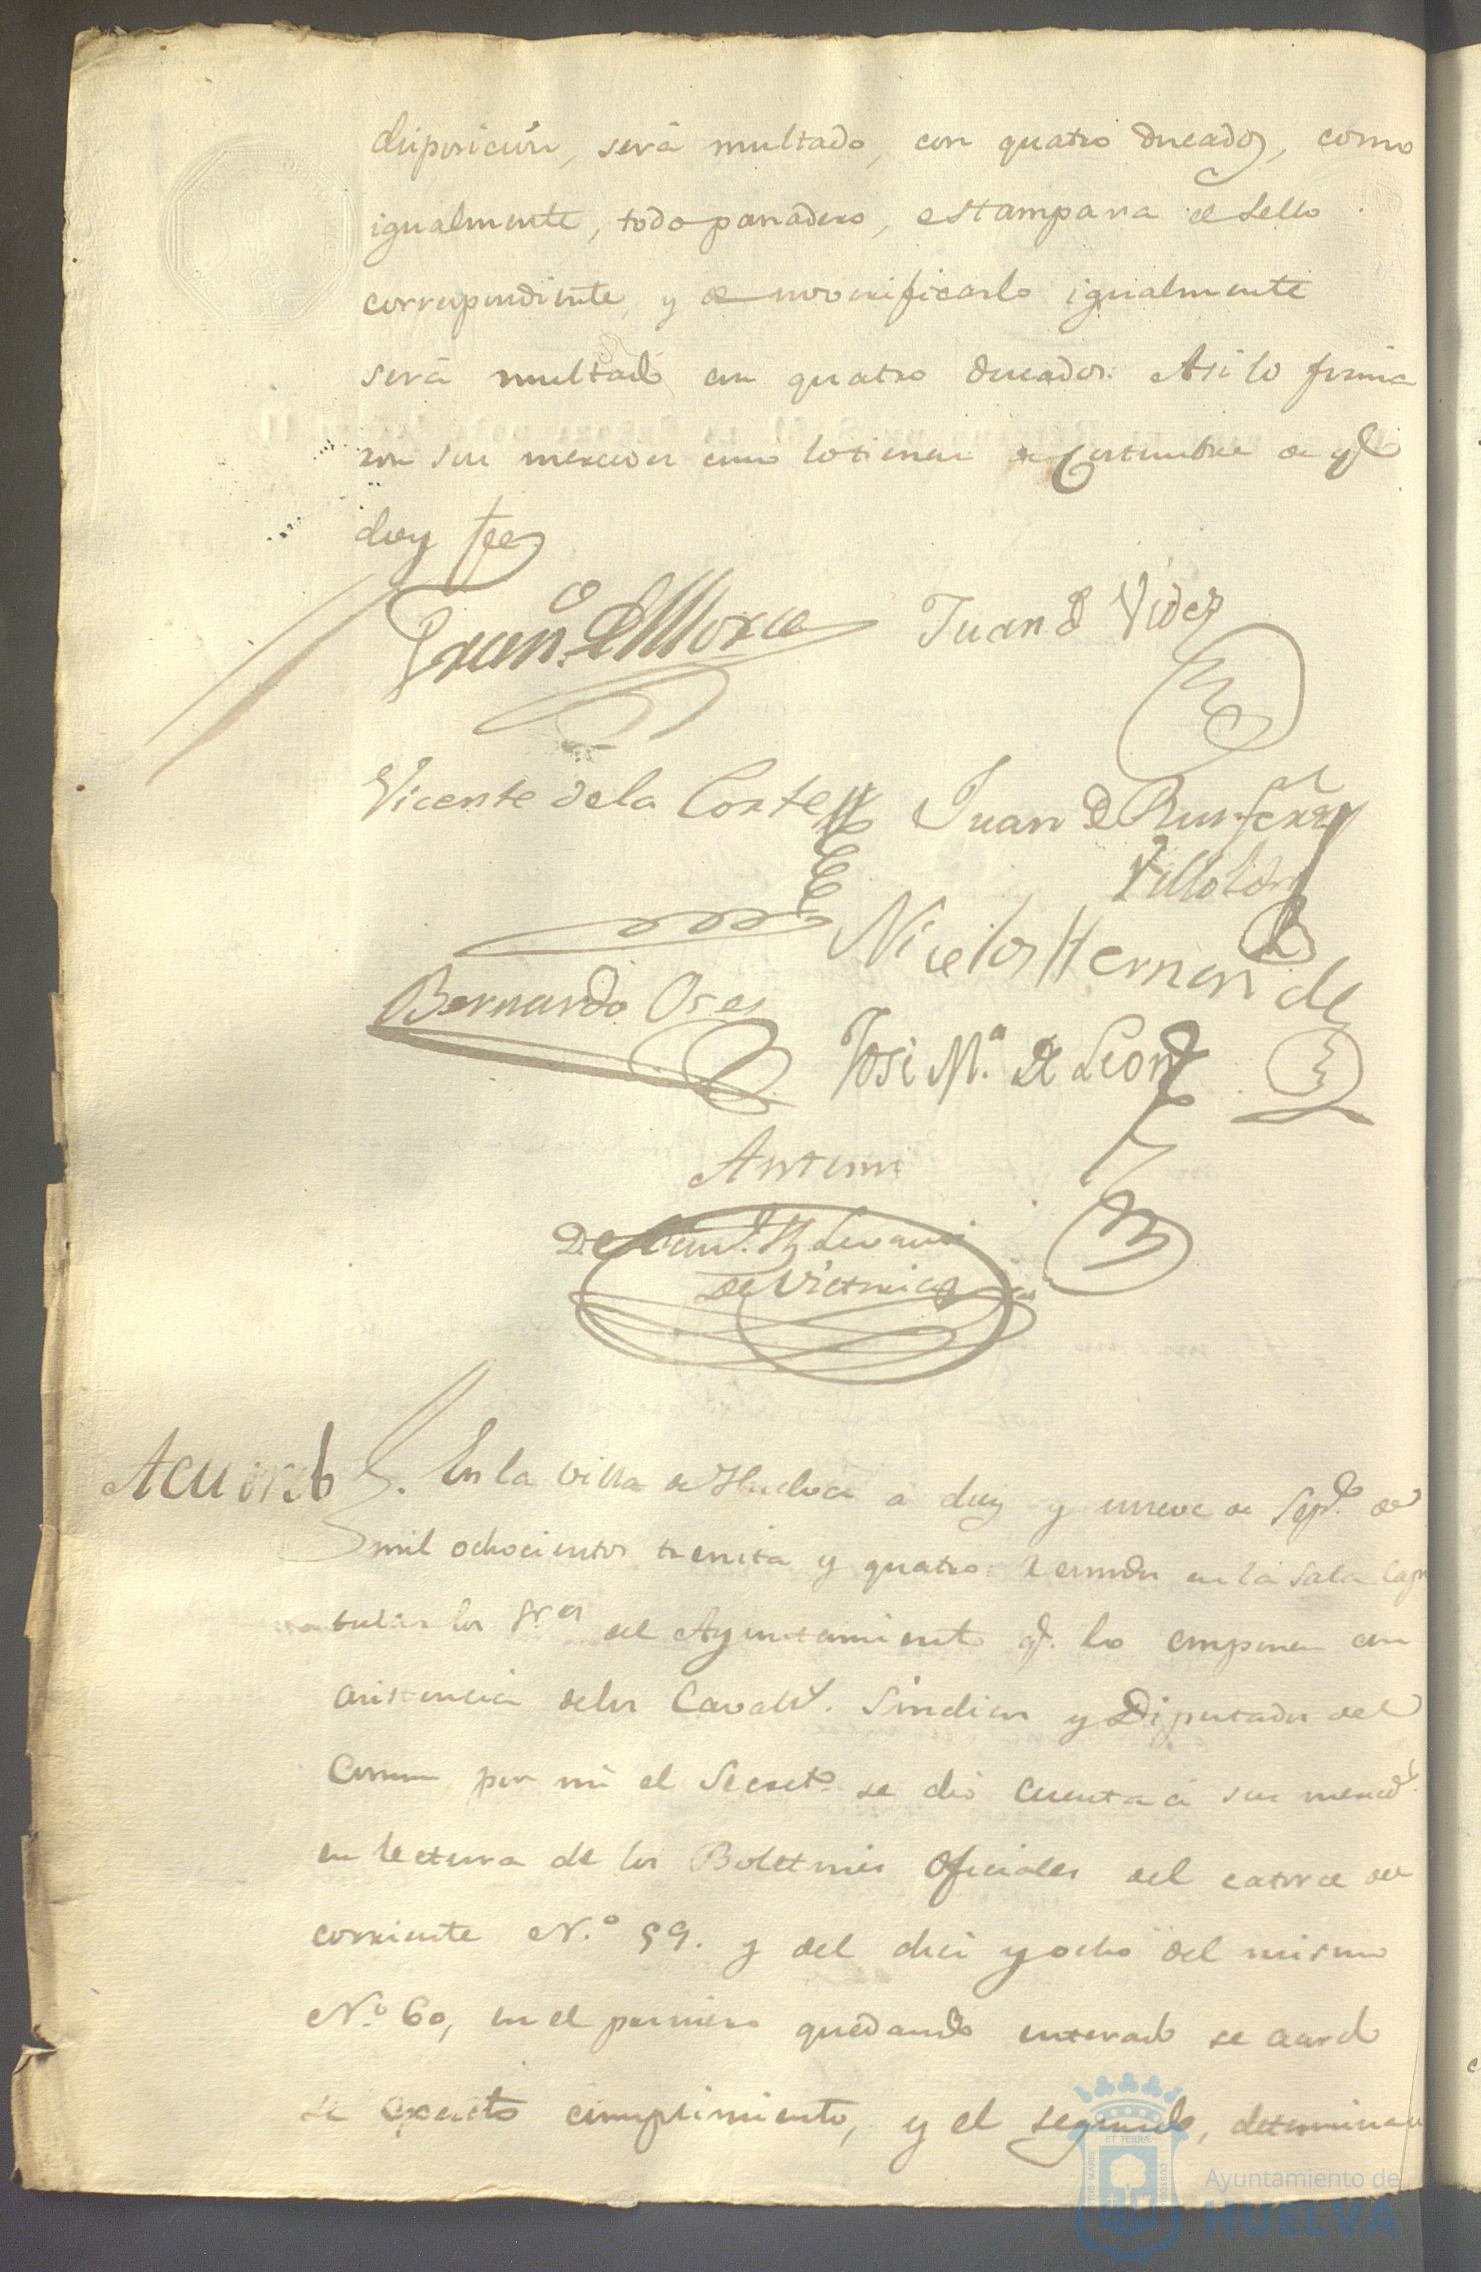 disposicion, será multado, con quatro ducados, como
igualmente, todo panadero, estampara el sello
correspondiente, y de no verificarlo igualmente
será multado con quatro ducados. Asi lo firma
ron sus mercedes como lo tienen de Costumbre de qe
doy fee
Franco. de Mora Juan de Videz
Vicente de la Corte Juan de Fernz
Villalobos
Nicolas Hernandez
Bernardo Oses
José Ma. de Leon
Ante mi
De
de Victoria
Acuerdo En la villa de Huelva a diez y nueve de Sepe. de
mil ochocientos treinta y quatro reunidos en la Sala Capi
tular los Sres del Ayuntamiento qe. lo componen con
asistencia de los Cavalls. Sindicos y Diputados del
Comun por mi el Secreto. se dió cuenta a sus merceds.
en lectura de los Boletines Oficiales del catorce del
corriente No. 59. y del diez y ocho del mismo
No. 60, en el primero quedando enterado se acordó
se exacto cumplimiento, y el segundo, determinan
ET TERRÆ
Ayuntamiento de
HUELVA